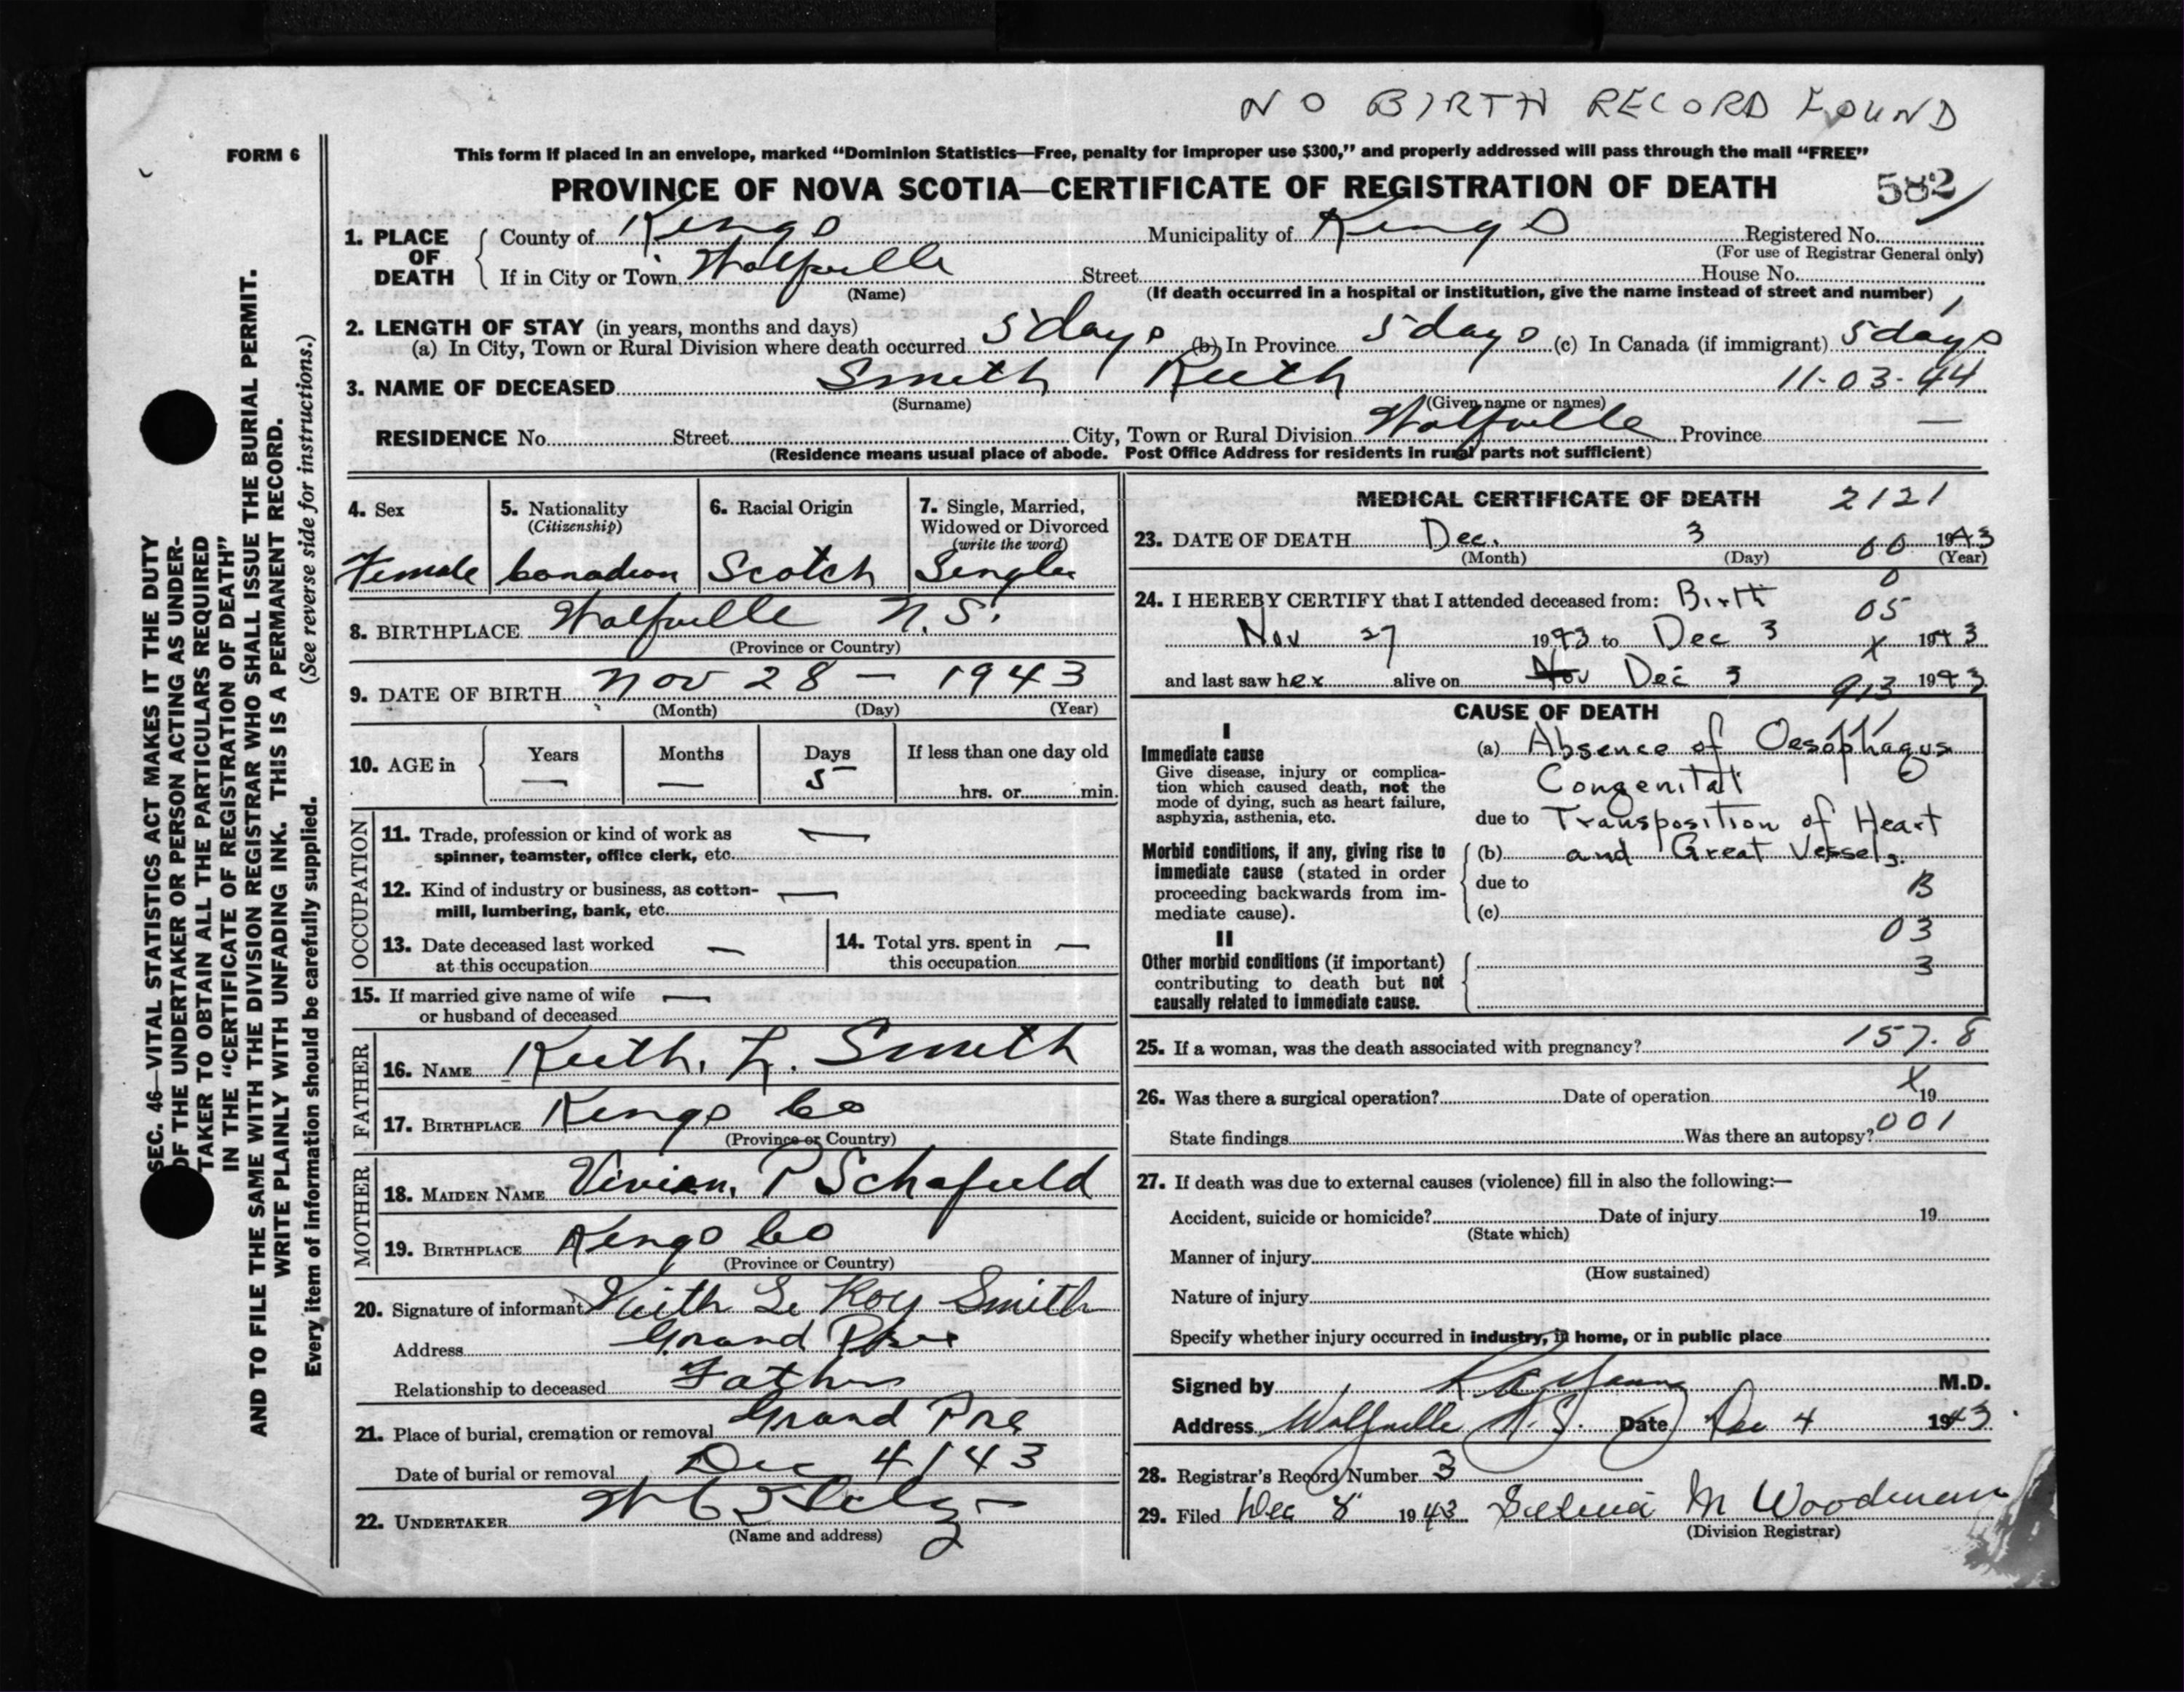 NO BIRTH RECORD FOUND
FORM 6
This form if placed in an envelope, marked “Dominion Statistics—Free, penalty for improper use $300,” and properly addressed will pass through the mail “FREE”
PROVINCE OF NOVA SCOTIA—CERTIFICATE OF REGISTRATION OF DEATH 582
SEC. 46—VITAL STATISTICS ACT MAKES IT THE DUTY
OF THE UNDERTAKER OR PERSON ACTING AS UNDER-
TAKER TO OBTAIN ALL THE PARTICULARS REQUIRED
IN THE “CERTIFICATE OF REGISTRATION OF DEATH”
AND TO FILE THE SAME WITH THE DIVISION REGISTRAR WHO SHALL ISSUE THE BURIAL PERMIT.
WRITE PLAINLY WITH UNFADING INK. THIS IS A PERMANENT RECORD.
Every item of information should be carefully supplied. (See reverse side for instructions.)
1. PLACE OF DEATH
County of Kings Municipality of Kings Registered No.
(For use of Registrar General only)
If in City or Town Wolfville Street House No.
(Name) (If death occurred in a hospital or institution, give the name instead of street and number)
2. LENGTH OF STAY (in years, months and days)
(a) In City, Town or Rural Division where death occurred 5 days (b) In Province 5 days (c) In Canada (if immigrant) 5 days
3. NAME OF DECEASED Smith Ruth 11-03-44
(Surname) (Given name or names)
RESIDENCE No. Street City, Town or Rural Division Wolfville Province —
(Residence means usual place of abode. Post Office Address for residents in rural parts not sufficient)
4. Sex
Female
5. Nationality
(Citizenship)
Canadian
6. Racial Origin
Scotch
7. Single, Married,
Widowed or Divorced
(write the word)
Single
8. BIRTHPLACE Wolfville N.S.
(Province or Country)
9. DATE OF BIRTH Nov 28 — 1943
(Month) (Day) (Year)
10. AGE in Years Months Days If less than one day old
— — 5 hrs. or min.
OCCUPATION
11. Trade, profession or kind of work as —
spinner, teamster, office clerk, etc.
12. Kind of industry or business, as cotton- —
mill, lumbering, bank, etc.
13. Date deceased last worked —
at this occupation
14. Total yrs. spent in —
this occupation
15. If married give name of wife —
or husband of deceased
FATHER
16. NAME Keith. L. Smith
17. BIRTHPLACE Kings Co
(Province or Country)
MOTHER
18. MAIDEN NAME Vivian. P Schofield
19. BIRTHPLACE Kings Co
(Province or Country)
20. Signature of informant Keith Le Roy Smith
Address Grand Pre
Relationship to deceased Father
21. Place of burial, cremation or removal Grand Pre
Date of burial or removal Dec 4/43
22. UNDERTAKER
(Name and address)
MEDICAL CERTIFICATE OF DEATH 2121
23. DATE OF DEATH Dec. 3 60 1943
(Month) (Day) (Year)
0
24. I HEREBY CERTIFY that I attended deceased from: Birth 05
Nov 27 1943 to Dec 3 x 1943
and last saw her alive on Nov Dec 3 913 1943
CAUSE OF DEATH
I
Immediate cause
Give disease, injury or complica-
tion which caused death, not the
mode of dying, such as heart failure,
asphyxia, asthenia, etc.
(a) Absence of Oesophagus
Congenital
due to Transposition of Heart
Morbid conditions, if any, giving rise to
immediate cause (stated in order
proceeding backwards from im-
mediate cause).
(b) and Great Vessels.
due to B
(c)
03
II
Other morbid conditions (if important)
contributing to death but not
causally related to immediate cause.
3
25. If a woman, was the death associated with pregnancy? 157.8
26. Was there a surgical operation? Date of operation x 19
State findings Was there an autopsy? 001
27. If death was due to external causes (violence) fill in also the following:—
Accident, suicide or homicide? Date of injury 19
(State which)
Manner of injury
(How sustained)
Nature of injury
Specify whether injury occurred in industry, in home, or in public place
Signed by M.D.
Address Wolfville N.S. Date Dec 4 1943
28. Registrar's Record Number 3
29. Filed Dec 8 1943 M Woodman
(Division Registrar)